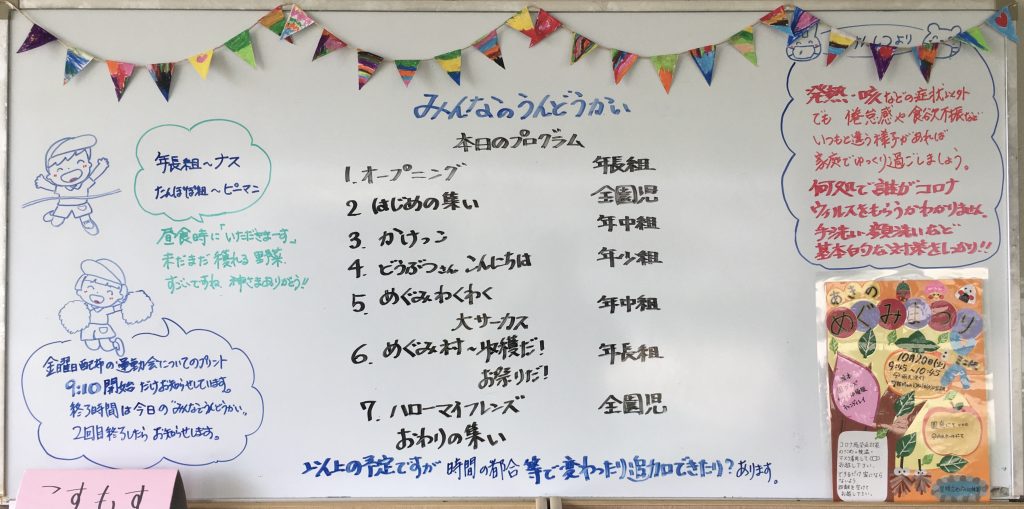 みんなのうんどうかい
本日のプログラム
1. オープニング 年長組
2 はじめの集い 全園児
3. かけっこ 年中組
4. どうぶつさん こんにちは 年少組
5 めぐみわくわく 年中組
大サーカス
6. めぐみ村〜収穫だ! 年長組
お祭りだ!
7. ハローマイフレンズ 全園児
おわりの集い
以上の予定ですが 時間の都合 等で変わったり追加できたり?あります。
年長組〜ナス
たんぽぽ組〜ピーマン
昼食時に「いただきまーす」
まだまだ穫れる野菜
すごいですね、神さまありがとう!!
金曜日配布の運動会についてのプリント
9:10 開始 だけお知らせしています。
終了時間は今日の"みんなのうんどうかい。
2回目終了したら お知らせします。
こすもす
発熱・咳などの症状以外
でも 倦怠感や食欲不振など
いつもと違う様子があれば
家庭でゆっくり過ごしましょう。
何処で誰がコロナ
ウィルスをもらうかわかりません。
手洗い・顔洗いなど
基本的な対策をしっかり!!
あきの
めぐみまつり
10月20日(土)
9:45〜10:45
コロナ感染症対策